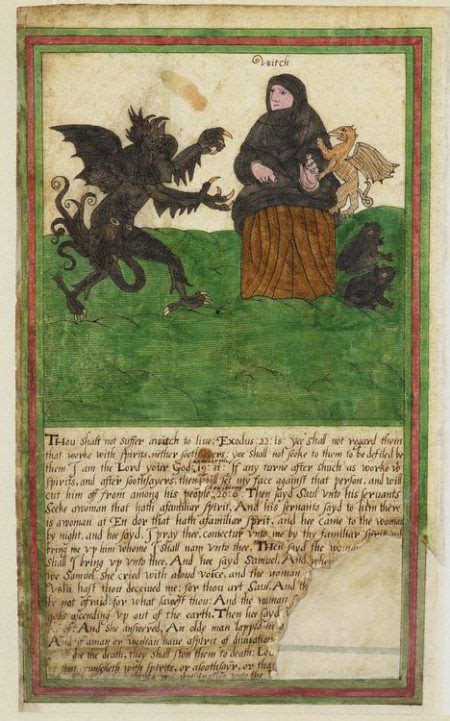 witch
THou shalt not suffer awitch to live: Exodus: 22: 18: yee shall not regard them
that worke with spirits, nether soothsayers, yee shall not seeke to them to be defiled be
them I am the Lord your God: 19: 31: If any turne after shuch as worke w
spirits, and after soothsayers, then will set my face against that person, and will
cut him off from among his people, 20: 6: Then sayd Saul vnto his seruants
Seeke awoman that hath afamiliar spirit, And his seruants sayd to him there
is awoman at En dor that hath afamiliar sprit, and hee came to the woman
by night, and he sayd, I pray thee, coniectur vnto me by thy familiar spirit and
bring me vp him whome I shall nam vnto thee, THen sayd the woma
shall I bring vp vnto thee, And hee sayd Samuel. And when
we Samuel, She cryed with aloud voice, and the woman
hast thou deceiued me: for thou art Saul. And th
not afraid: for what sawest thou: And the woman
gods ascending vp out of the earth. Then hee sayd
of: And She ansered, An olde man lapped in a
And if aman or woman haue aspirit of diuination
die the death, they shall ston them to death: Leu
counseleth with spirits, or asoothsayr, or that